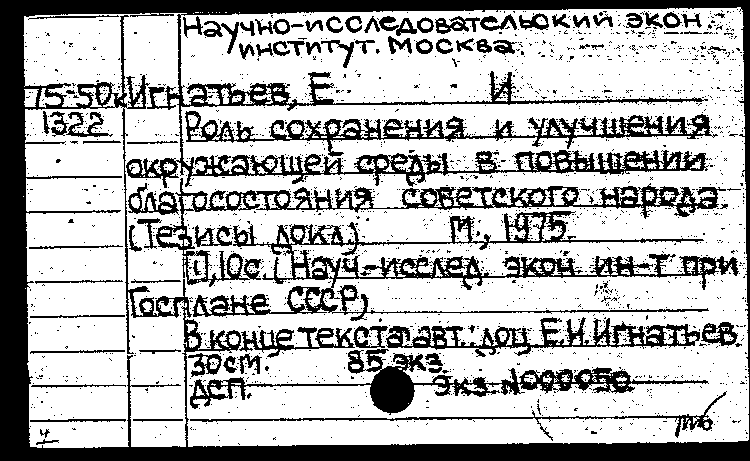 Научно-исследовательский экон.
институт. Москва.
75-50к Игнатьев, Е И
1322 Роль сохранения и улучшения
окружающей среды в повышении
благосостояния советского народа.
(Тезисы докл.) М., 1975.
[1], 10с. (Науч.-исслед. экон. ин-т при
Госплане СССР)
В конце текста авт.: доц Е.И.Игнатьев
30см. 85 экз.
ДСП. Экз. №000050